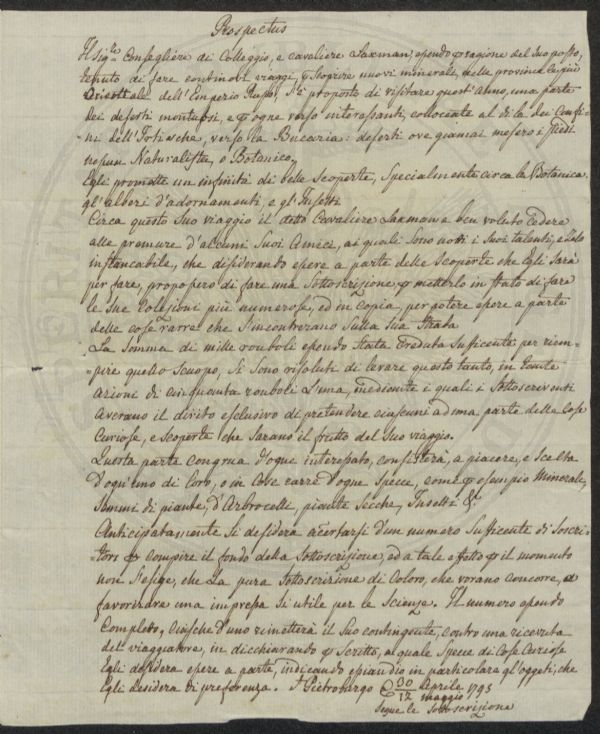 Prospectus
Il Sigre Consegliere di Colleggio, e cavaliere Laxman, essendo per ragione del suo posto,
tenuto di fare continovi viaggi, per scoprire nuovi minerale, nelle province le più
Orientale dell'Emperio Russo, s'è proposto di visitare quest'Anno, una parte
dei deserti montuosi, e per ogne verso interessanti, collocate al di la dei Confi-
ni dell' verso la Bucaria: deserti ove giamai mesero i piedi
nessun Naturalista, o Botanico.
Egli promette un infinità di belle scoperte, specialmente circa la Botanica
gl'alberi d'adornamenti, e gl'Insetti.
Circa questo suo viaggio il detto Cavaliere Laxman e ben voluto Cedere
alle premure d'alcuni suoi amici, ai quali sono notti i suoi talenti, e Zelo
instancabile, che disiderando essere a parte delle scoperte che Egli sarà
per fare, proposero di fare una Sottoscrizione per meterlo in stato di fare
le sue Colezioni più numerose, ed in Copia, per potere essere a parte
delle cose rarre che s'incontrerano sulla sua strata
La somma di mille rouboli essendo stata Creduta sufficente per riem-
=pire quello scuopo, si sono risoluti di levare questo tanto, in
azioni di cinquanta rouboli l'una, mediante i quali i Sottoscriventi
averano il dirito esclusivo di pretendere ciascuni ad una parte delle Cose
Curiose, e scoperte che sarano il frutto del suo viaggio.
Questa parte congrua d'ogne interessato, consisterà, a piacere, e scelta
d'ogn'uno di Loro, o in Cose rarre d'ogne Specce, come per esempio Minerale,
Semini di piante, d'Arbrocelli, piante secche, Insetti &.
Anticipatamente si desidera acertarsi d'un numero sufficente di Soscri-
=tori per compire il fondo della Sottoscrizione, ed a tale effetto per il momento
non s'esige, che La pura Sottoscrizione di Coloro, che vorano concore, a
favorizare una impresa si utile per le Scienze. Il numero essendo
Completo, Ciasche d'uno rimetterà il suo contingente, contro una ricevuta
del viaggiatore, in dicchiarando per scritto, a quale Specce di Cose Curiose
Egli desidera essere a parte, indicando esiandio in particolare gl'oggeti, che
Egli desidera di preferenza. St Pietroburgo 30 Aprile / 12 maggio 1795
Segue le Sottoscrizione